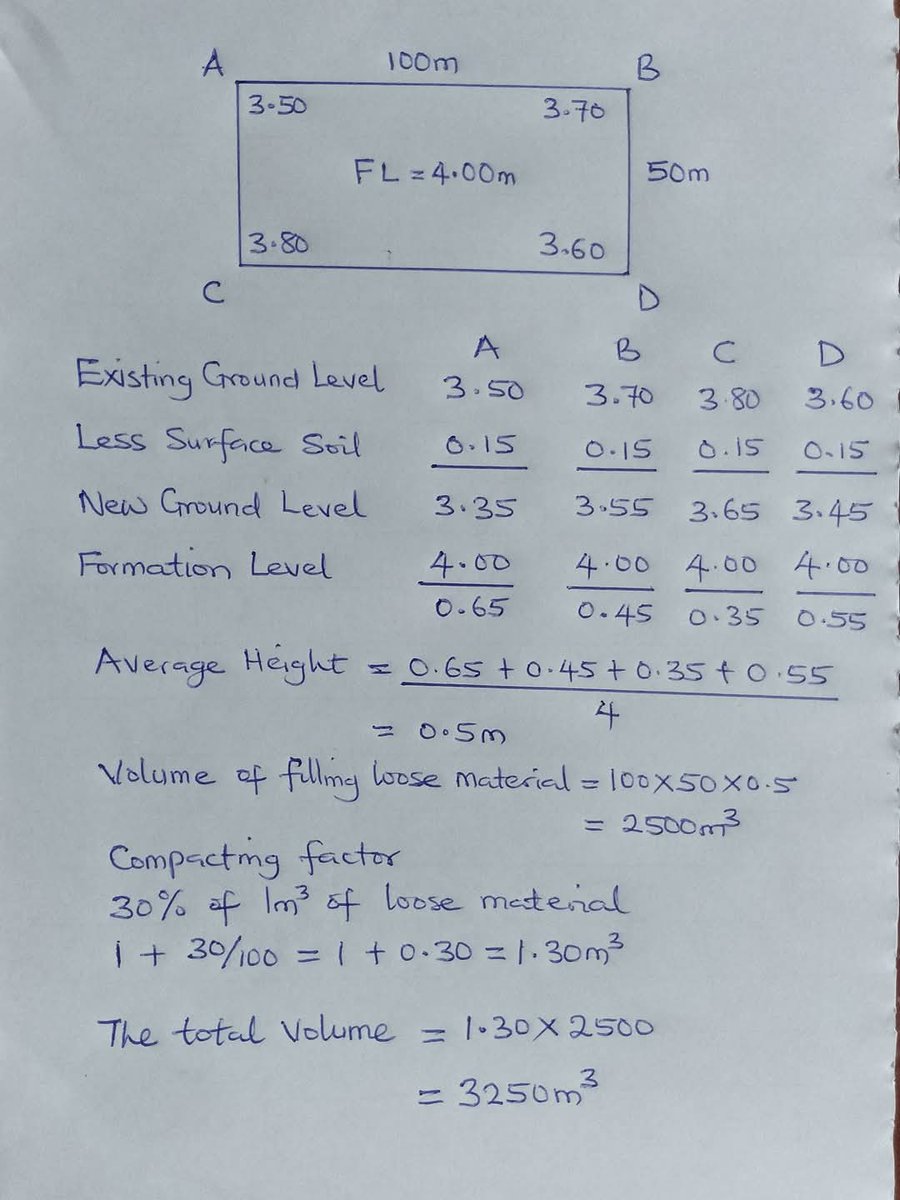 A 100m B
3.50 3.70
FL = 4.00m 50m
3.80 3.60
C D
A B C D
Existing Ground Level 3.50 3.70 3.80 3.60
Less Surface Soil 0.15 0.15 0.15 0.15
New Ground Level 3.35 3.55 3.65 3.45
Formation Level 4.00 4.00 4.00 4.00
0.65 0.45 0.35 0.55
Average Height = 0.65 + 0.45 + 0.35 + 0.55
4
= 0.5m
Volume of filling loose material = 100 x 50 x 0.5
= 2500m³
Compacting factor
30% of 1m³ of loose material
1 + 30/100 = 1 + 0.30 = 1.30m³
The total Volume = 1.30 x 2500
= 3250m³